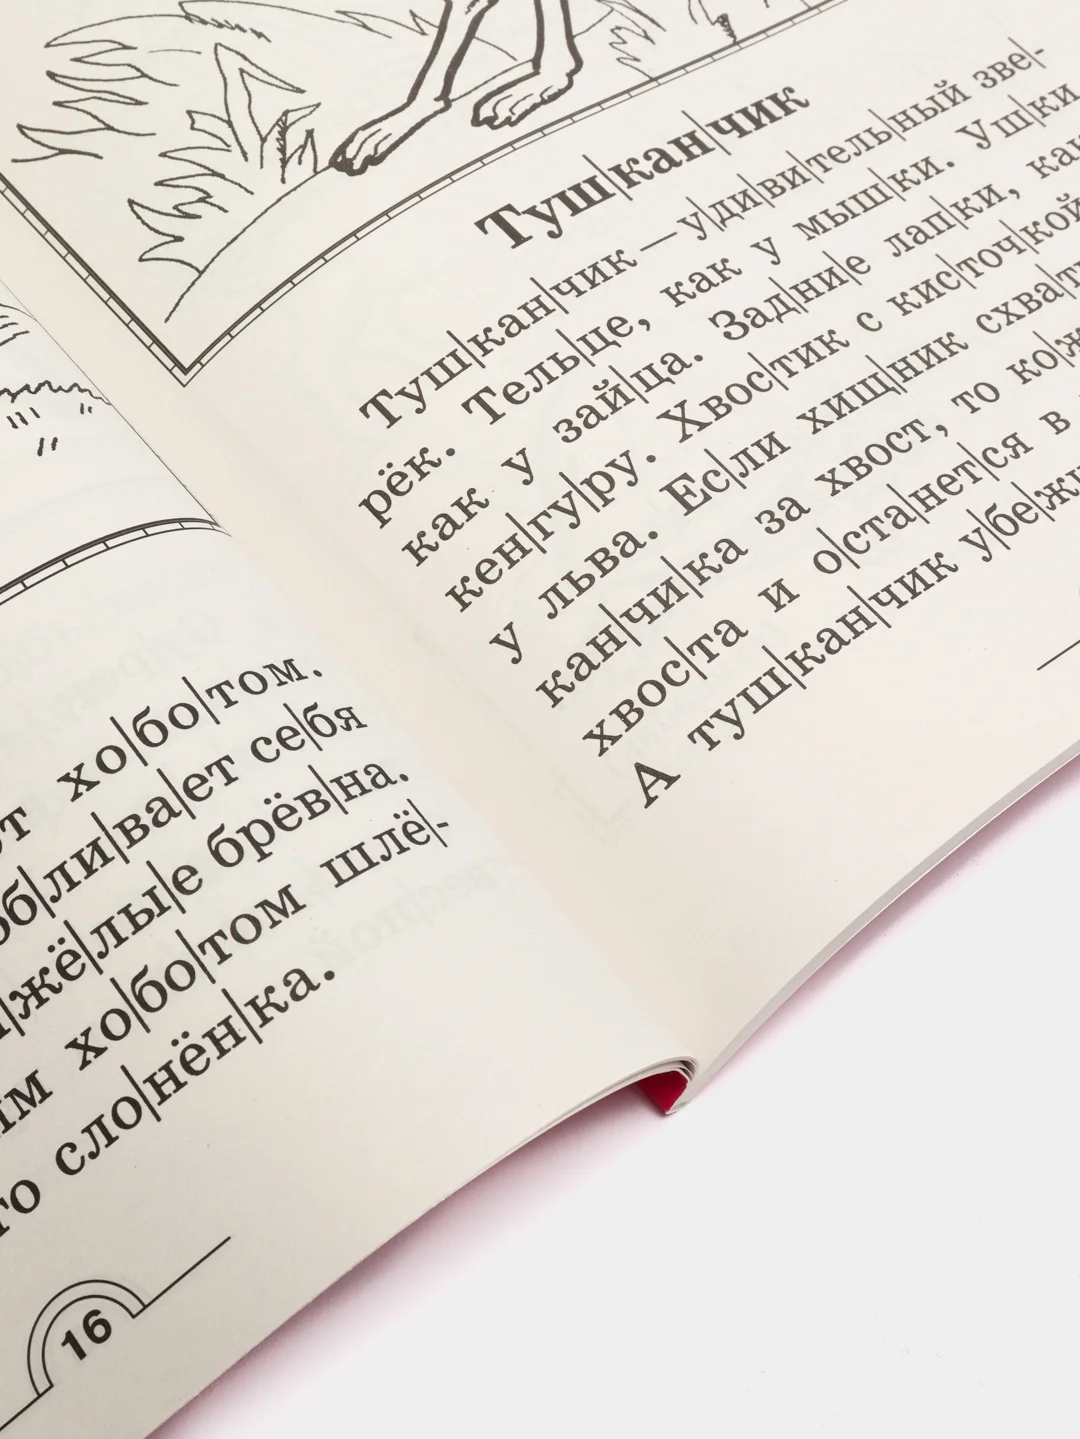 хо|бо|том.
ли|ва|ет се|бя
жё|лы|е брёв|на.
хо|бо|том шлё|-
сло|нён|ка.
16
Туш|кан|чик
Туш|кан|чик — у|ди|ви|тель|ный зве|-
рёк. Тель|це, как у мыш|ки. Уш|ки
как у зай|ца. Зад|ни|е лап|ки, как
кен|гу|ру. Хвос|тик с кис|точ|кой
у льва. Ес|ли хищ|ник
кан|чи|ка за хвост, то
хвос|та и о|ста|нет|ся в
А туш|кан|чик